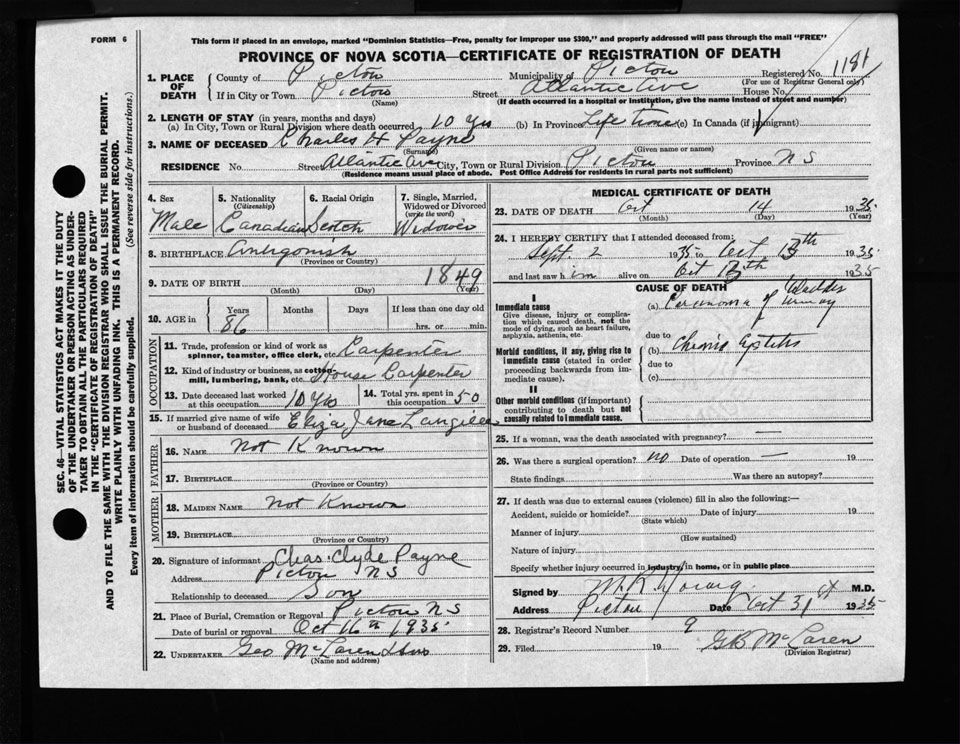 FORM 6
This form if placed in an envelope, marked "Dominion Statistics—Free, penalty for improper use $300," and properly addressed will pass through the mail "FREE"
PROVINCE OF NOVA SCOTIA—CERTIFICATE OF REGISTRATION OF DEATH
1. PLACE OF DEATH County of Pictou Municipality of Pictou Registered No. 1181
(For use of Registrar General only)
If in City or Town Pictou Street Atlantic Ave House No.
(Name) (If death occurred in a hospital or institution, give the name instead of street and number)
2. LENGTH OF STAY (in years, months and days)
(a) In City, Town or Rural Division where death occurred 10 Yrs (b) In Province Life time (c) In Canada (if immigrant)
3. NAME OF DECEASED Charles H Payne
(Surname) (Given name or names)
RESIDENCE No. Street Atlantic Ave City, Town or Rural Division Pictou Province N S
(Residence means usual place of abode. Post Office Address for residents in rural parts not sufficient)
4. Sex Male
5. Nationality (Citizenship) Canadian
6. Racial Origin Scotch
7. Single, Married, Widowed or Divorced (write the word) Widower
8. BIRTHPLACE Antigonish
(Province or Country)
9. DATE OF BIRTH 1849
(Month) (Day) (Year)
10. AGE in Years 86 Months Days If less than one day old
hrs. or min.
OCCUPATION
11. Trade, profession or kind of work as spinner, teamster, office clerk, etc. Carpenter
12. Kind of industry or business, as cotton-mill, lumbering, bank, etc. House Carpenter
13. Date deceased last worked at this occupation 10 Yrs
14. Total yrs. spent in this occupation 50
15. If married give name of wife or husband of deceased Eliza Jane Langille
FATHER
16. NAME Not Known
17. BIRTHPLACE
(Province or Country)
MOTHER
18. MAIDEN NAME Not Known
19. BIRTHPLACE
(Province or Country)
20. Signature of informant Chas. Clyde Payne
Address Pictou N S
Relationship to deceased Son
21. Place of Burial, Cremation or Removal Pictou N S
Date of burial or removal Oct 16th 1935
22. UNDERTAKER Geo McLaren & Sons
(Name and address)
MEDICAL CERTIFICATE OF DEATH
23. DATE OF DEATH Oct 14 1935
(Month) (Day) (Year)
24. I HEREBY CERTIFY that I attended deceased from:
Sept. 2 1935 to Oct 13th 1935
and last saw him alive on Oct 13th 1935
CAUSE OF DEATH
I
Immediate cause
Give disease, injury or complication which caused death, not the mode of dying, such as heart failure, asphyxia, asthenia, etc.
(a) Carcinoma of urinary bladder
due to
Morbid conditions, if any, giving rise to immediate cause (stated in order proceeding backwards from immediate cause).
(b) Chronic Cystitis
due to
(c)
II
Other morbid conditions (if important) contributing to death but not causally related to immediate cause.
25. If a woman, was the death associated with pregnancy? —
26. Was there a surgical operation? no Date of operation — 19
State findings Was there an autopsy?
27. If death was due to external causes (violence) fill in also the following:—
Accident, suicide or homicide? Date of injury 19
(State which)
Manner of injury
(How sustained)
Nature of injury
Specify whether injury occurred in industry, in home, or in public place
Signed by M. R. Young M.D.
Address Pictou Date Oct 31st 1935
28. Registrar's Record Number 9
29. Filed 19 G B McLaren
(Division Registrar)
SEC. 46—VITAL STATISTICS ACT MAKES IT THE DUTY
OF THE UNDERTAKER OR PERSON ACTING AS UNDER-
TAKER TO OBTAIN ALL THE PARTICULARS REQUIRED
IN THE "CERTIFICATE OF REGISTRATION OF DEATH"
AND TO FILE THE SAME WITH THE DIVISION REGISTRAR WHO SHALL ISSUE THE BURIAL PERMIT.
WRITE PLAINLY WITH UNFADING INK. THIS IS A PERMANENT RECORD.
Every item of information should be carefully supplied. (See reverse side for instructions.)